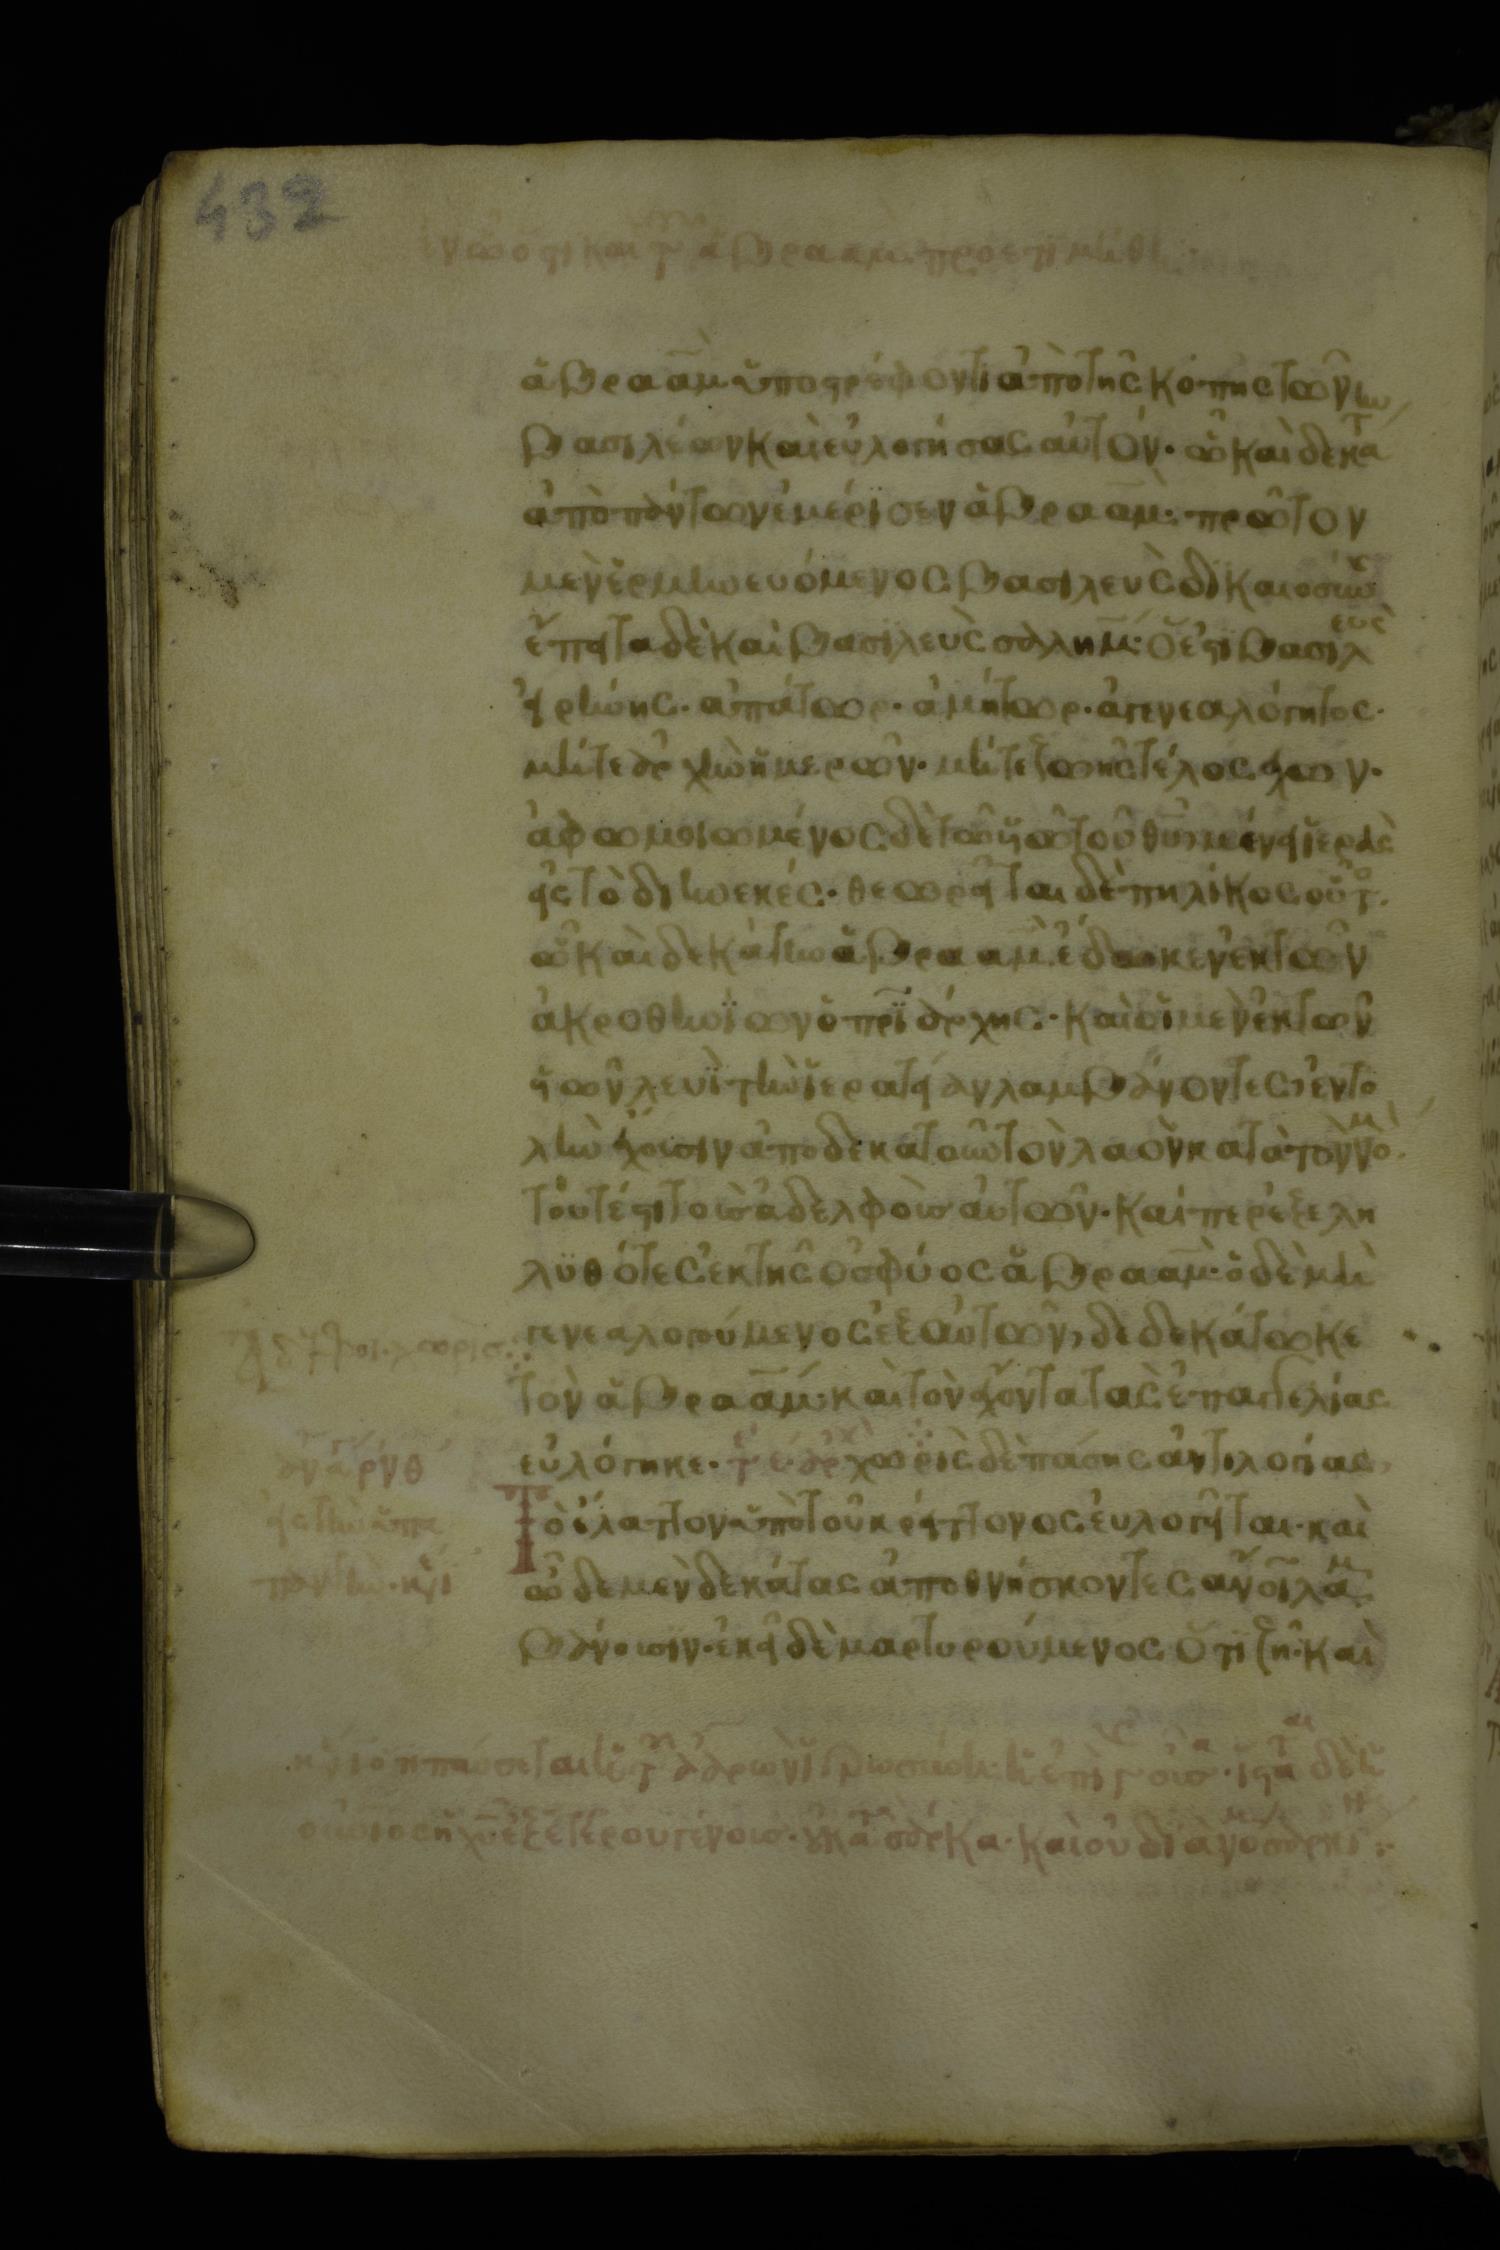 432
ἐν ὧ ὅτι καὶ τ ἀβραὰμ προετιμήθη
ἀβραὰμ ὑποστρέφοντι ἀπὸ τῆς κοπῆς τῶν
βασιλέων καὶ εὐλογήσας αὐτόν· ὧ καὶ δεκατ
ἀπὸ πάντων ἐμέρισεν ἀβραάμ· πρῶτον
μὲν ἑρμηνευόμενος βασιλεὺς δικαιοσύν
ἔπειτα δὲ καὶ βασιλεὺς σαλήμ· ὅ ἐστι βασιλεὺς
εἰρήνης· ἀπάτωρ· ἀμήτωρ· ἀγενεαλόγητος·
μήτε ἀρχὴν ἡμερῶν· μήτε ζωῆς τέλος ἔχων·
ἀφωμοιωμένος δὲ τῶ υἱῶ τοῦ θυ, μένει ἱερεὺς
εἰς τὸ διηνεκές· θεωρεῖται δὲ πηλίκος οὗτο·
ὧ καὶ δεκάτην ἀβραὰμ ἔδωκεν ἐκ τῶν
ἀκροθινίων ὁ πρϊάρχης· καὶ οἱ μὲν ἐκ τῶν
υἱῶν λευῒ τὴν ἱερατείαν λαμβάνοντες, ἐντο
λὴν ἔχουσιν ἀποδεκατοῦν τὸν λαὸν κατὰ τὸν νόμ·
τουτέστι τοὺς ἀδελφοὺς αὐτῶν· καίπερ ἐξελη
λυθότες ἐκ τῆς ὀσφύος ἀβραάμ· ὁ δὲ μὴ
γενεαλογούμενος ἐξ αὐτῶν, δεδεκάτωκε
τὸν ἀβραάμ· καὶ τὸν ἔχοντα τὰς ἐπαγγελίας
εὐλόγηκε· τε ἀρχ χωρὶς δὲ πάσης ἀντιλογίας,
Τὸ ἔλαττον ὑπὸ τοῦ κρείττονος εὐλογεῖται· καὶ
ὧδε μὲν δεκάτας ἀποθνήσκοντες ἀνοι λαμ
βάνουσιν· ἐκεῖ δὲ μαρτυρούμενος ὅτι ζῆ· καὶ
ἀδελφοι· χωρὶς
εἰς τὴν ὑπα
παντὴν·
σάρκα· καὶ οὐ